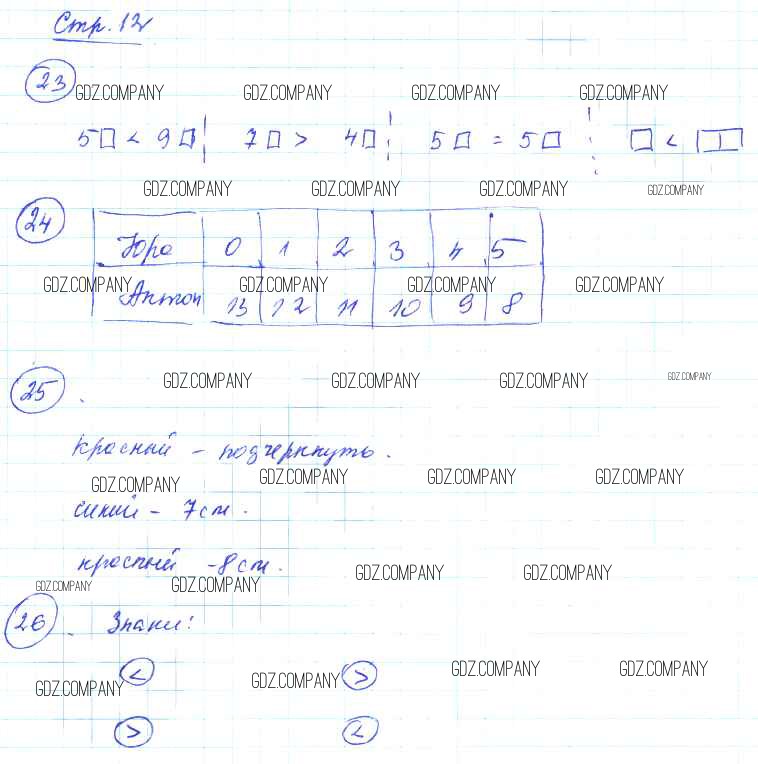 Стр. 12
23
GDZ.COMPANY GDZ.COMPANY GDZ.COMPANY GDZ.COMPANY
5□ < 9□ 7□ > 4□ 5□ = 5□ □ < □□
GDZ.COMPANY GDZ.COMPANY GDZ.COMPANY GDZ.COMPANY
24
Юра 0 1 2 3 4 5
GDZ.COMPANY GDZ.COMPANY GDZ.COMPANY GDZ.COMPANY
Антон 13 12 11 10 9 8
25
GDZ.COMPANY GDZ.COMPANY GDZ.COMPANY GDZ.COMPANY
красный – подчеркнуть.
GDZ.COMPANY GDZ.COMPANY GDZ.COMPANY GDZ.COMPANY
синий – 7см.
красный – 8см.
GDZ.COMPANY GDZ.COMPANY GDZ.COMPANY GDZ.COMPANY
26. Знаки:
< >
GDZ.COMPANY GDZ.COMPANY GDZ.COMPANY GDZ.COMPANY
> <